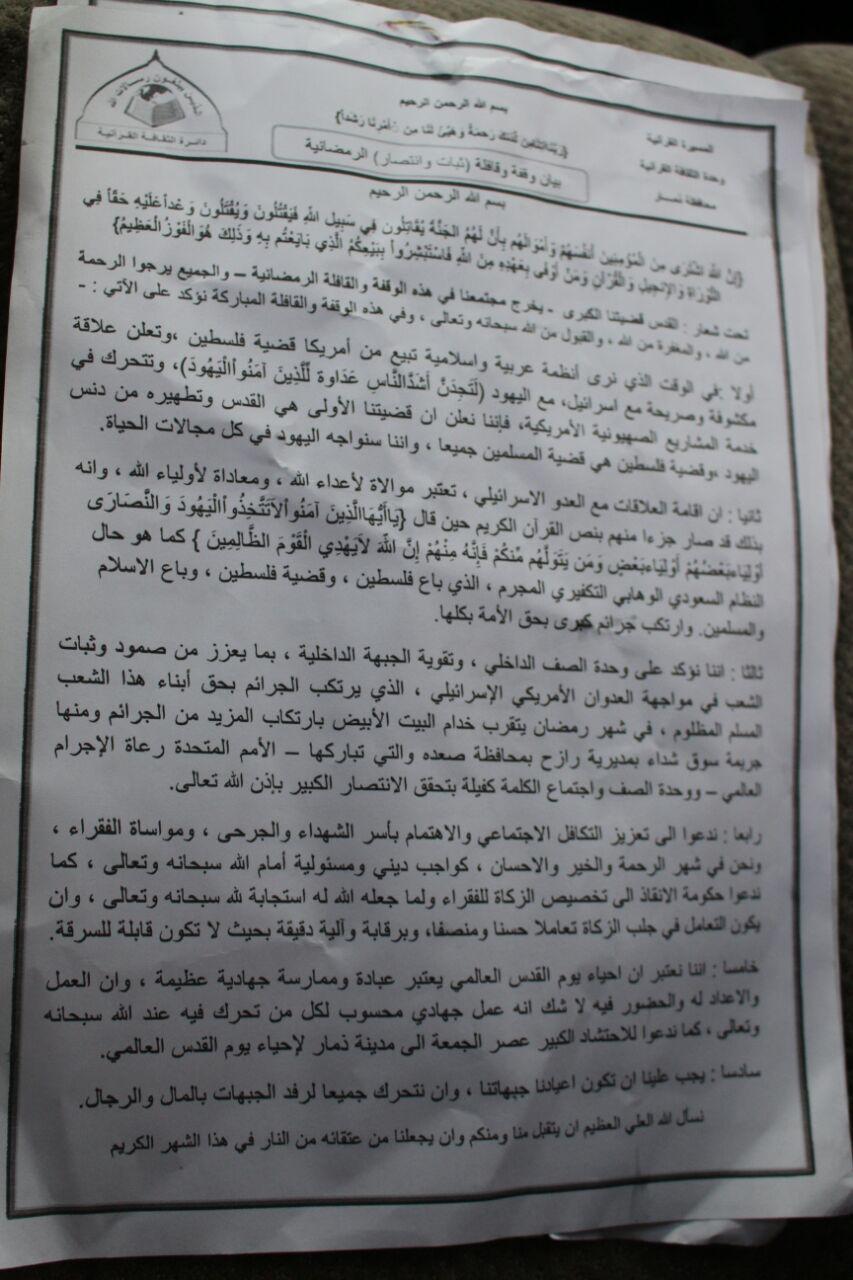 الذين يبلغون رسالات الله
دائرة الثقافة القرآنية
بسم الله الرحمن الرحيم
{ربنا آتنا من لدنك رحمة وهيئ لنا من أمرنا رشدا}
المسيرة القرآنية
وحدة الثقافة القرآنية
محافظة ذمـــار
بيان وقفة وقافلة (ثبات وانتصار) الرمضانية
بسم الله الرحمن الرحيم
{إِنَّ اللّهَ اشْتَرَى مِنَ الْمُؤْمِنِينَ أَنفُسَهُمْ وَأَمْوَالَهُم بِأَنَّ لَهُمُ الجَنَّةَ يُقَاتِلُونَ فِي سَبِيلِ اللّهِ فَيَقْتُلُونَ وَيُقْتَلُونَ وَعْداً عَلَيْهِ حَقّاً فِي
التَّوْرَاةِ وَالإِنجِيلِ وَالْقُرْآنِ وَمَنْ أَوْفَى بِعَهْدِهِ مِنَ اللّهِ فَاسْتَبْشِرُواْ بِبَيْعِكُمُ الَّذِي بَايَعْتُم بِهِ وَذَلِكَ هُوَ الْفَوْزُ الْعَظِيمُ}
تحت شعار : القدس قضيتنا الكبرى - يخرج مجتمعنا في هذه الوقفة والقافلة الرمضانية – والجميع يرجوا الرحمة
من الله ، والمغفرة من الله ، والقبول من الله سبحانه وتعالى ، وفي هذه الوقفة والقافلة المباركة نؤكد على الآتي : -
أولا :في الوقت الذي نرى أنظمة عربية واسلامية تبيع من أمريكا قضية فلسطين ،وتعلن علاقة
مكشوفة وصريحة مع اسرائيل، مع اليهود (لَتَجِدَنَّ أَشَدَّ النَّاسِ عَدَاوَةً لِّلَّذِينَ آمَنُواْ الْيَهُودَ)، وتتحرك في
خدمة المشاريع الصهيونية الأمريكية، فإننا نعلن ان قضيتنا الأولى هي القدس وتطهيره من دنس
اليهود ،وقضية فلسطين هي قضية المسلمين جميعا ، واننا سنواجه اليهود في كل مجالات الحياة.
ثانيا : ان اقامة العلاقات مع العدو الاسرائيلي ، تعتبر موالاة لأعداء الله ، ومعاداة لأولياء الله ، وانه
بذلك قد صار جزءا منهم بنص القرآن الكريم حين قال {يَاأَيُّهَا الَّذِينَ آمَنُواْ لاَ تَتَّخِذُواْ الْيَهُودَ وَالنَّصَارَى
أَوْلِيَاء بَعْضُهُمْ أَوْلِيَاء بَعْضٍ وَمَن يَتَوَلَّهُم مِّنكُمْ فَإِنَّهُ مِنْهُمْ إِنَّ اللّهَ لاَ يَهْدِي الْقَوْمَ الظَّالِمِينَ } كما هو حال
النظام السعودي الوهابي التكفيري المجرم ، الذي باع فلسطين ، وقضية فلسطين ، وباع الاسلام
والمسلمين. وارتكب جرائم كبرى بحق الأمة بكلها.
ثالثا : اننا نؤكد على وحدة الصف الداخلي ، وتقوية الجبهة الداخلية ، بما يعزز من صمود وثبات
الشعب في مواجهة العدوان الأمريكي الإسرائيلي ، الذي يرتكب الجرائم بحق أبناء هذا الشعب
المسلم المظلوم ، في شهر رمضان يتقرب خدام البيت الأبيض بارتكاب المزيد من الجرائم ومنها
جريمة سوق شداء بمديرية رازح بمحافظة صعده والتي تباركها – الأمم المتحدة رعاة الإجرام
العالمي – ووحدة الصف واجتماع الكلمة كفيلة بتحقق الانتصار الكبير بإذن الله تعالى.
رابعا : ندعوا الى تعزيز التكافل الاجتماعي والاهتمام بأسر الشهداء والجرحى ، ومواساة الفقراء ،
ونحن في شهر الرحمة والخير والاحسان ، كواجب ديني ومسئولية أمام الله سبحانه وتعالى ، كما
ندعوا حكومة الانقاذ الى تخصيص الزكاة للفقراء ولما جعله الله له استجابة لله سبحانه وتعالى ، وان
يكون التعامل في جلب الزكاة تعاملا حسنا ومنصفا، وبرقابة وآلية دقيقة بحيث لا تكون قابلة للسرقة.
خامسا : اننا نعتبر ان احياء يوم القدس العالمي يعتبر عبادة وممارسة جهادية عظيمة ، وان العمل
والاعداد له والحضور فيه لا شك انه عمل جهادي محسوب لكل من تحرك فيه عند الله سبحانه
وتعالى ، كما ندعوا للاحتشاد الكبير عصر الجمعة الى مدينة ذمار لإحياء يوم القدس العالمي.
سادسا : يجب علينا ان تكون اعيادنا جبهاتنا ، وان نتحرك جميعا لرفد الجبهات بالمال والرجال.
نسأل الله العلي العظيم ان يتقبل منا ومنكم وان يجعلنا من عتقائه من النار في هذا الشهر الكريم